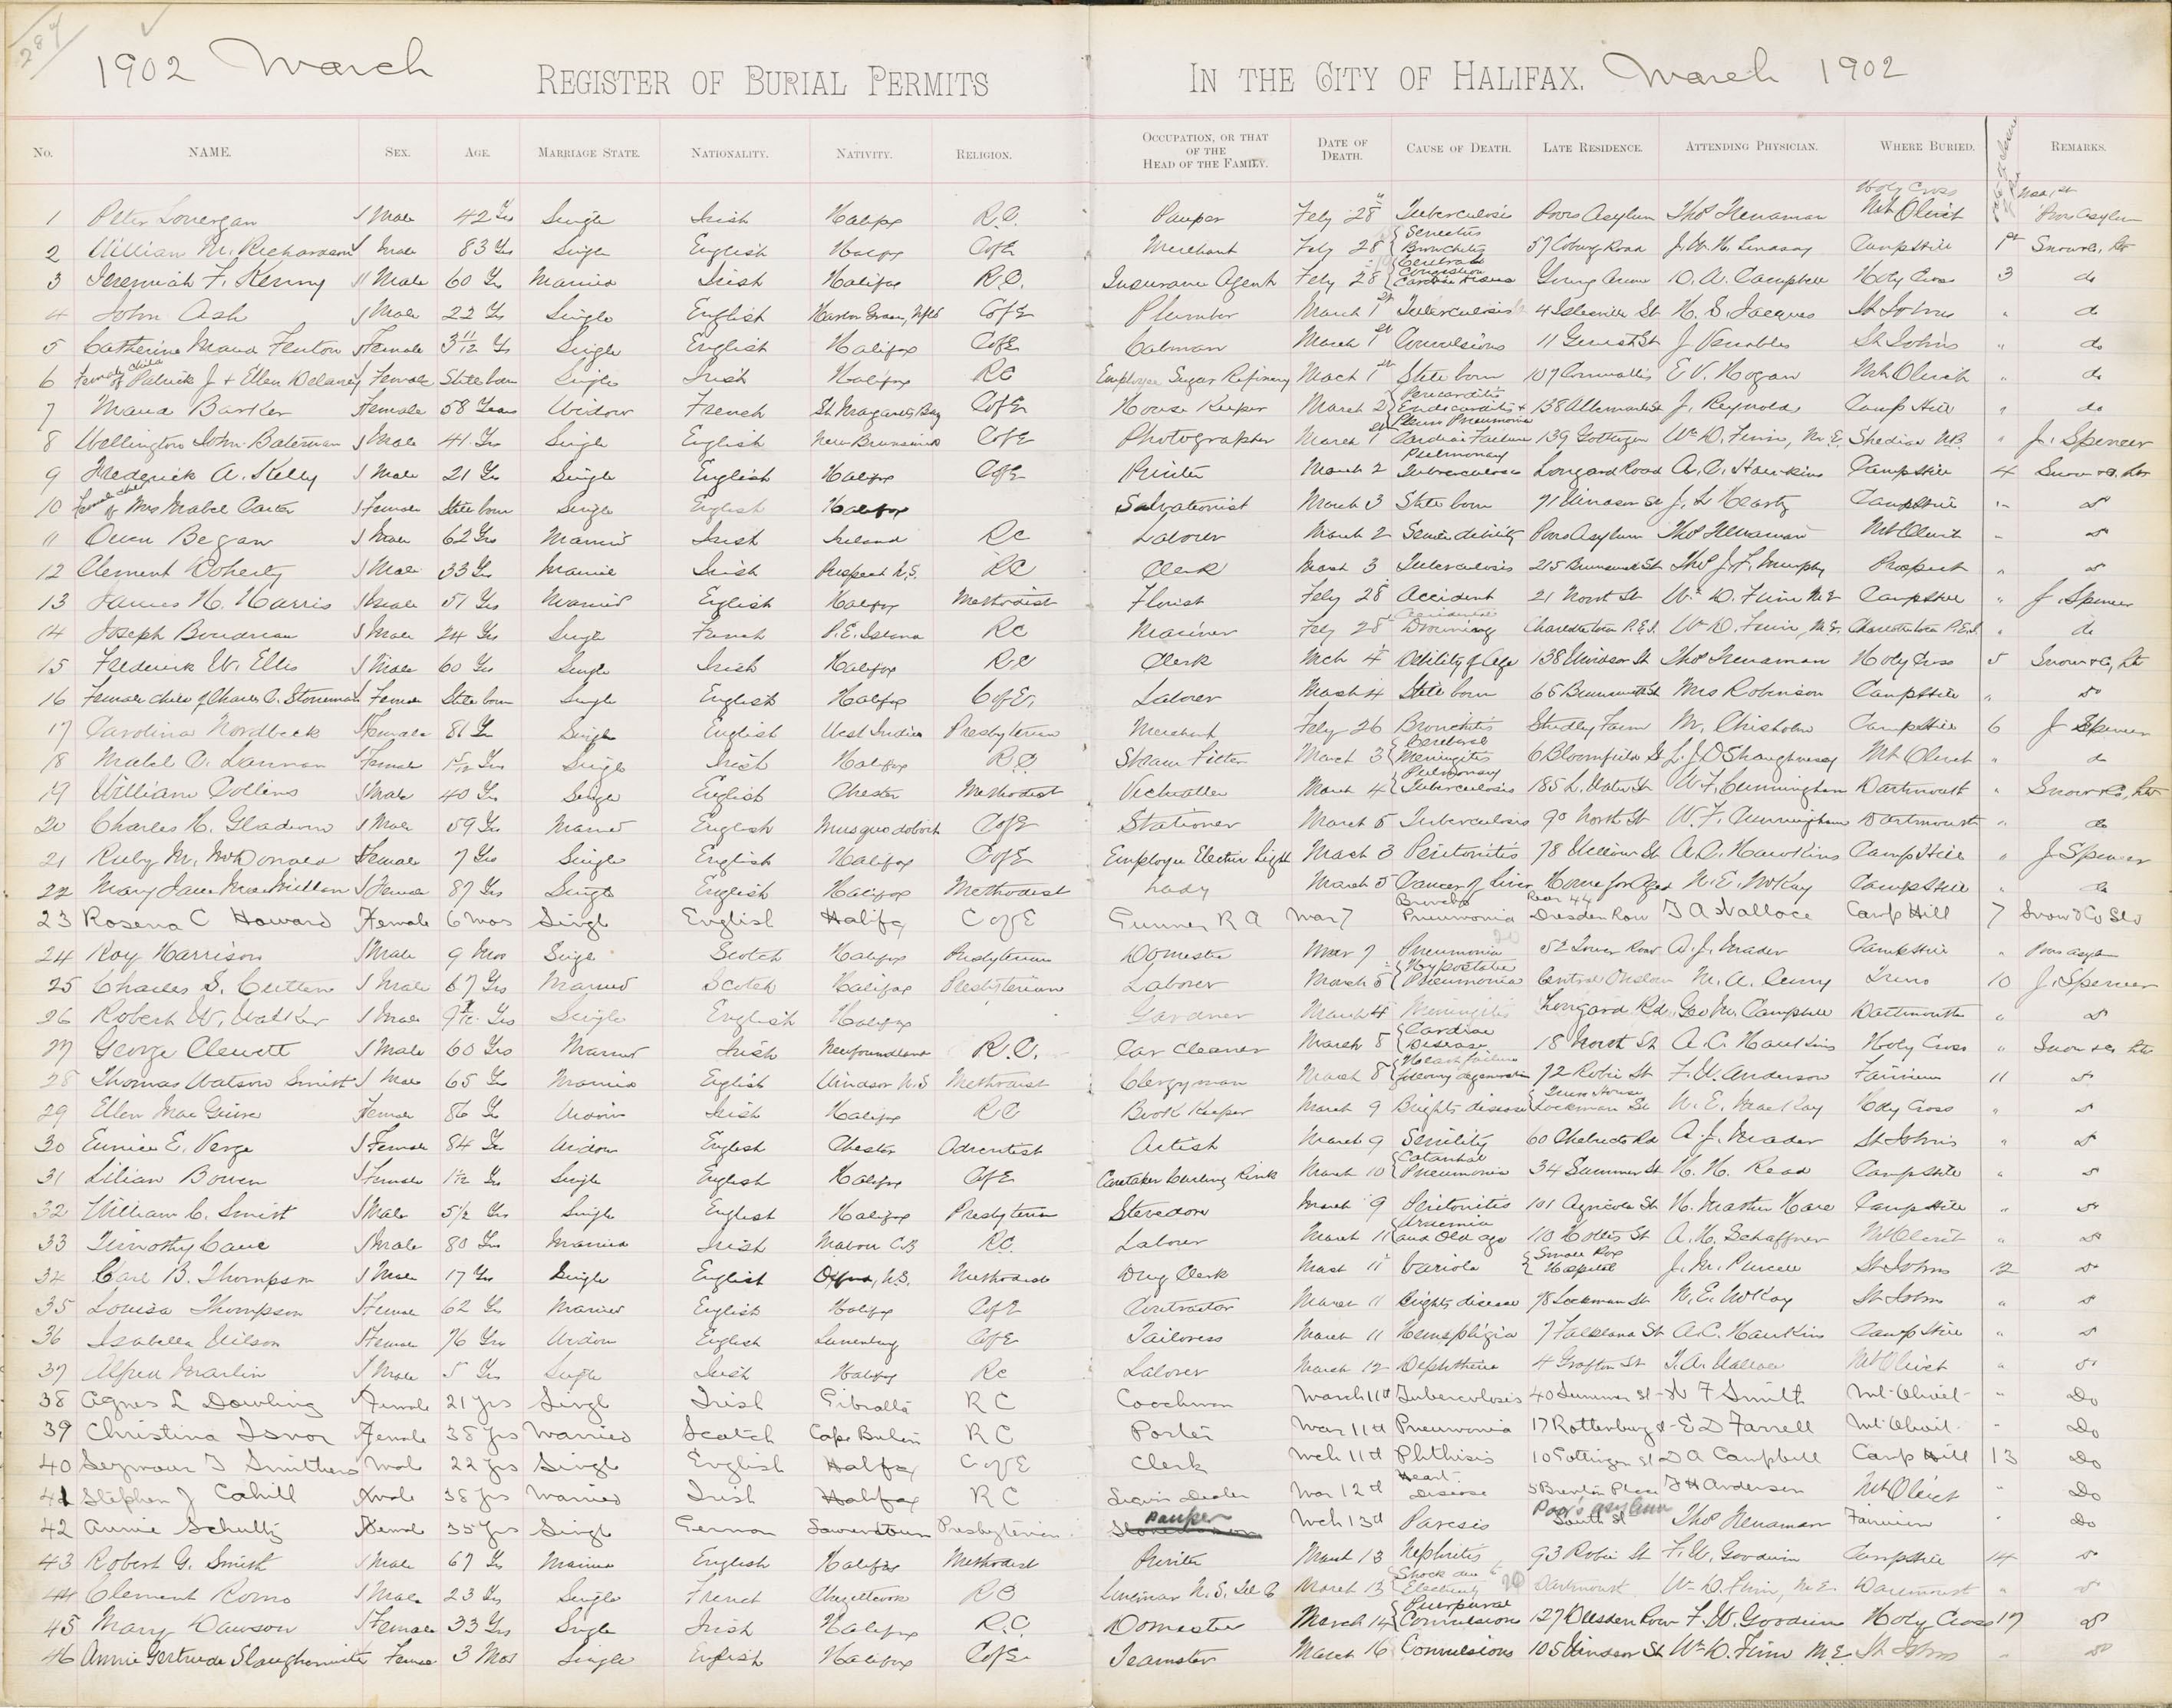 284
1902 March REGISTER OF BURIAL PERMITS IN THE CITY OF HALIFAX. March 1902
No. NAME. SEX. AGE. MARRIAGE STATE. NATIONALITY. NATIVITY. RELIGION. OCCUPATION, OR THAT OF THE HEAD OF THE FAMILY. DATE OF DEATH. CAUSE OF DEATH. LATE RESIDENCE. ATTENDING PHYSICIAN. WHERE BURIED. REMARKS.
1 Peter Lonergan Male 42 Yrs Single Irish Halifax R.C. Pauper Feby 28 Tuberculosis Poors Asylum Thos Trenaman Holy Cross Mt Olivet Poors Asylum
2 William M. Richardson Male 83 Yrs Single English Halifax CofE Merchant Feby 28 Senectus Bronchitis 57 Coburg Road J. W. N. Lindsay Camp Hill 1st Snow & Co
3 Jeremiah F. Kenny Male 60 Yrs Married Irish Halifax R.C. Insurance Agent Feby 28 Cerebral Congestion Cardiac Young Avenue D. A. Campbell Holy Cross 3 do
4 John Ash Male 22 Yrs Single English Harbor Grace, Nfld CofE Plumber March 1st Tuberculosis 4 Islesville St H. S. Jacques St Johns " do
5 Catherine Maud Fenton Female 3 11/12 Yrs Single English Halifax CofE Cabman March 1st Convulsions 11 Gerrish St J. Venables St Johns " do
6 Female child of Patrick J & Ellen Delaney Female Still born Single Irish Halifax RC Employee Sugar Refinery Mach 1st Still born 107 Cornwallis E V. Hogan Mt Olivet " do
7 Maria Barker Female 58 Years Widow French St Margarets Bay CofE House Keeper March 2 Pericarditis Endocarditis & Pleuro Pneumonia 138 Albemarle St J. Reynolds Camp Hill " do
8 Wellington John Bateman Male 41 Yrs Single English New Brunswick CofE Photographer March 1st Cardiac Failure 139 Gottingen Wm D. Finn, M.E. Shediac NB. " J. Spencer
9 Frederick A. Kelly Male 21 Yrs Single English Halifax CofE Printer March 2 Pulmonary Tuberculosis Longard Road A. C. Hawkins Camp Hill 4 Snow & Co, Ltd
10 Female child of Mrs Mabel Carter Female Still born Single English Halifax Salvationist March 3 Still born 71 Windsor St J. L. Hearty Camp Hill " do
11 Owen Began Male 62 Yrs Married Irish Ireland RC Laborer March 2 Senile debility Poors Asylum Thos Trenaman Mt Olivet " do
12 Clement Doherty Male 33 Yrs Married Irish Prospect N.S. RC Clerk March 3 Tuberculosis 215 Brunswick St Thos J. F. Murphy Prospect " do
13 James H. Harris Male 51 Yrs Married English Halifax Methodist Florist Feby 28 Accident 21 North St Wm D. Finn M.E Camp Hill " J. Spencer
14 Joseph Boudreau Male 24 Yrs Single French P.E. Island RC Mariner Feby 28 Accidental Drowning Charlottetown P.E.I. Wm D. Finn, M.E. Charlottetown P.E.I. " do
15 Frederick W. Ellis Male 60 Yrs Single Irish Halifax RC Clerk Mch 4 Debility of Age 138 Windsor St Thos Trenaman Holy Cross 5 Snow & Co, Ltd
16 Female child of Charles C. Stoneman Female Still born Single English Halifax CofE. Laborer March 4 Still born 65 Brunswick St Mrs Robinson Camp Hill " do
17 Carolina Nordbeck Female 81 Yrs Single English West Indies Presbyterian Merchant Feby 26 Bronchitis Studley Farm M. Chisholm Camp Hill 6 J Spencer
18 Mabel C. Lannan Female Yrs Single Irish Halifax R.C. Steam Fitter March 3 Cerebral Meningitis 6 Bloomfield St L. J. O'Shaughnessy Mt Olivet " do
19 William Collins Male 40 Yrs Single English Chester Methodist Victualler March 4 Pulmonary Tuberculosis 185 L. Water St W. F. Cunningham Dartmouth " Snow & Co, Ltd
20 Charles H. Gladwin Male 59 Yrs Married English Musquodoboit CofE Stationer March 5 Tuberculosis 90 North St W. F. Cunningham Dartmouth " do
21 Ruby M. McDonald Female 7 Yrs Single English Halifax CofE Employee Electric Light March 3 Peritonitis 78 Willow St A. C. Hawkins Camp Hill " J Spencer
22 Mary Jane MacMillan Female 87 Yrs Single English Halifax Methodist Lady March 5 Cancer of Liver Home for Aged N. E. McKay Camp Hill " do
23 Rosena C Howard Female 6 mos Singl English Halifax C of E Gunner R A Mar 7 Broncho Pneumonia Rear 44 Dresden Row T A Wallace Camp Hill 7 Snow & Co Ltd
24 Roy Harrison Male 9 Mos Single Scotch Halifax Presbyterian Domestic Mar 7 Pneumonia 52 Tower Road A. J. Mader Camp Hill " Poors asylum
25 Charles S. Cutten Male 67 Yrs Married Scotch Halifax Presbyterian Laborer March 8 Hypostatic Pneumonia Central Onslow M. A. Curry Truro 10 J. Spencer
26 Robert W. Walker Male Yrs Single English Halifax Gardner March 4 Meningitis Longard Rd Geo M. Campbell Dartmouth " do
27 George Clewett Male 60 Yrs Married Irish Newfoundland R.C. Car Cleaner March 8 Cardiac Disease 18 North St A. C. Hawkins Holy Cross " Snow & Co Ltd
28 Thomas Watson Smith Male 65 Yrs Married English Windsor N.S Methodist Clergyman March 8 Heart failure following degeneration 72 Robie St F. W. Anderson Fairview 11 do
29 Ellen MacGuire Female 86 Yrs Widow Irish Halifax RC Book Keeper March 9 Brights disease Lockman St N. E. MacKay Holy Cross " do
30 Eunice E. Verge Female 84 Yrs Widow English Chester Adventist Artist March 9 Senility 60 Chebucto Rd A. J. Mader St Johns " do
31 Lilian Bowen Female Yrs Single English Halifax CofE Caretaker Curling Rink March 10 Catarrhal Pneumonia 34 Summer St H. H. Read Camp Hill " do
32 William C. Smith Male 5½ Yrs Single English Halifax Presbyterian Stevedore March 9 Peritonitis 101 Agricola St H. Mather Hare Camp Hill " do
33 Timothy Cane Male 80 Yrs Married Irish Mabou C.B RC. Laborer March 11 Uraemia and Old age 110 Hollis St A. H. Schaffner Mt Olivet " do
34 Carl B. Thompson Male 17 Yrs Single English Oxford, N.S. Methodist Drug Clerk March 11 Variola Small Pox Hospital J. M. Purcell St Johns 12 do
35 Louisa Thompson Female 62 Yrs Married English Halifax CofE Contractor March 11 Brights disease 78 Lockman St N. E. McKay St Johns " do
36 Isabella Wilson Female 76 Yrs Widow English Lunenburg CofE Tailoress March 11 Hemiplegia 7 Falkland St A. C. Hawkins Camp Hill " do
37 Alfred Marlin Male 5 Yrs Single Irish Halifax RC Laborer March 12 Diphtheria 4 Grafton St T. A. Wallace Mt Olivet " do
38 Agnes L Dowling Female 21 yrs Singl Irish Gibralta R C Coachman March 11th Tuberculosis 40 Summer St W F Smith Mt Olivet " Do
39 Christina Isnor Female 38 yrs Married Scotch Cape Breton R C Porter Mar 11th Pneumonia 17 Rottenburg St E D Farrell Mt Olivet " Do
40 Seymour T Smithers Male 22 yrs Singl English Halifax C of E Clerk Mch 11th Phthisis 10 Gottingen St D A Campbell Camp Hill 13 Do
41 Stephen J Cahill Male 38 yrs Married Irish Halifax R C Liquor Dealer Mar 12th Heart Disease 5 Brenton Place F H Anderson Mt Olivet " Do
42 Annie Schultz Female 35 yrs Singl German Presbyterian Pauper Mch 13th Paresis Poor's asylum South St Thos Trenaman Fairview " Do
43 Robert G. Smith Male 67 Yrs Married English Halifax Methodist Printer March 13 Nephritis 93 Robie St F. W. Goodwin Camp Hill 14 do
44 Clement Romo Male 23 Yrs Single French Chezzetcook RC Lineman N. S. Tel C March 13 Shock due to Electricity Dartmouth Wm D. Finn, M.E. Dartmouth " do
45 Mary Dawson Female 33 Yrs Single Irish Halifax R.C. Domestic March 14 Puerperal Convulsions 127 Dresden Row F. W. Goodwin Holy Cross 17 do
46 Annie Gertrude Slaughenwhite Female 3 Mos Single English Halifax CofE Teamster March 16 Convulsions 105 Windsor St Wm D. Finn M.E. St Johns " do